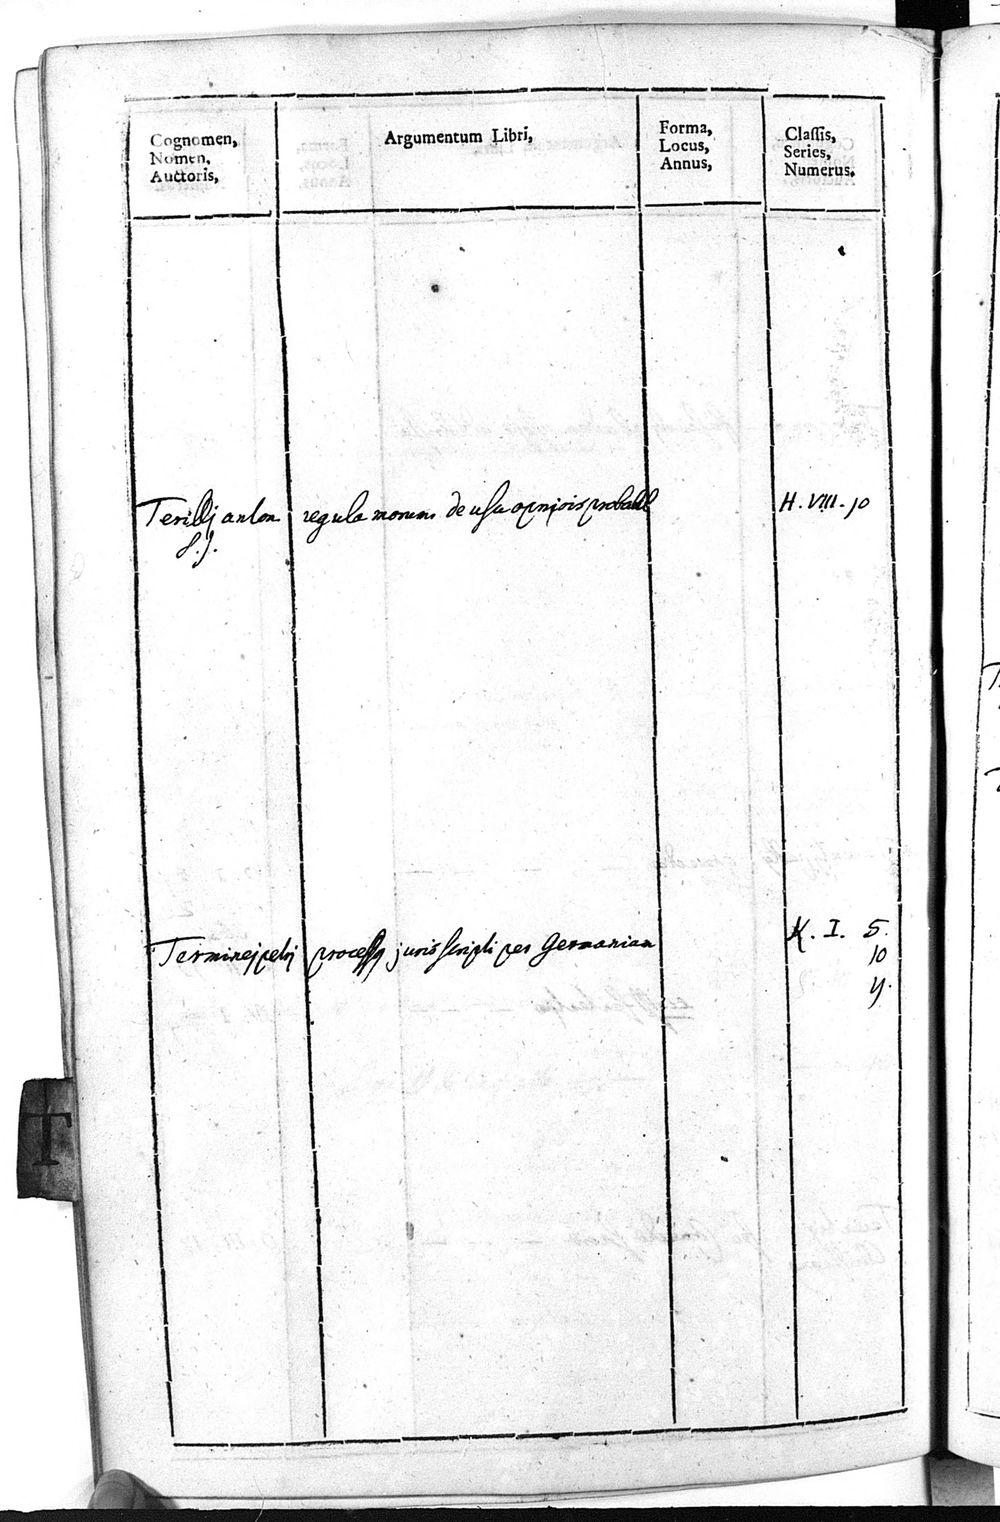 Cognomen,
Nomen,
Auctoris,
Argumentum Libri,
Forma,
Locus,
Annus,
Classis,
Series,
Numerus.
Terillj anton regula morum de usu opinjois probabil H. VIII. 10
S. J.
Terminej petrj processq juris scripti per Germaniam K. I. 5.
10
T